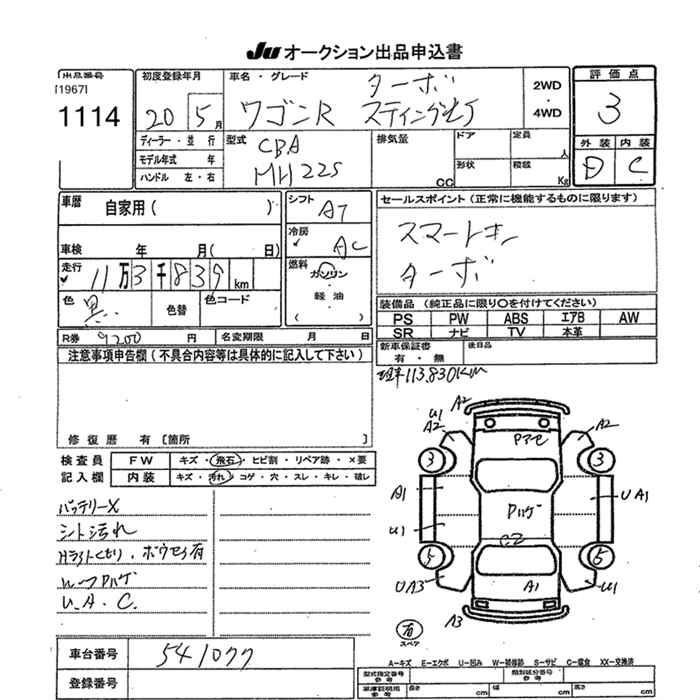 JU オークション出品申込書
出品番号 初度登録年月 車名・グレード 評価点
[1967]
1114
20 5月
ワゴンR ターボ スティングレイ
2WD
・
4WD
3
ディーラー・並行
モデル年式 年
ハンドル 左・右
型式 CBA
MH22S
排気量 CC
ドア 定員 人
形状 積載 Kg
外装 内装
D C
車歴 自家用( )
シフト AT
セールスポイント(正常に機能するものに限ります)
スマートキー
ターボ
車検 年 月( 日)
冷房 ✓ AC
走行 ✓ 11万3千839km
燃料 ガソリン
・
軽油
( )
色 黒 色替 色コード
装備品(純正品に限り○を付けてください)
PS PW ABS エアB AW
SR ナビ TV 本革
R券 9200円 名変期限 月 日
新車保証書 有・無 後日品
注意事項申告欄(不具合内容等は具体的に記入して下さい)
113.830KM
修復歴 有[箇所 ]
検査員 FW キズ・飛石・ヒビ割・リペア跡・×要
記入欄 内装 キズ・汚れ・コゲ・穴・スレ・キレ・破レ
バッテリーX
シート汚れ
Hライトくもり、ボウセイ有
ルーフPハゲ
U.A.C.
U1 A2
A2 A2
3 3
A1 UA1
Pハゲ
U1
C2
5 5
UA3 A1 U1
A3
有
スペア
車台番号 541077
登録番号
A-キズ E-エクボ U-凹み W-補修跡 S-サビ C-腐食 XX-交換済
型式指定番号 参考 類別区分番号 参考
車庫証明用 参考 長さ cm 幅 cm 高さ cm